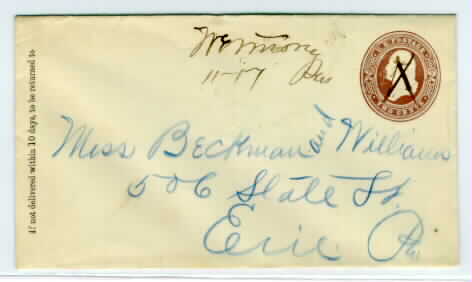 11-17 Pa
U.S. POSTAGE
TWO CENTS
If not delivered within 10 days, to be returned to
Miss Beckman and Williams
506 State St.
Erie Pa.